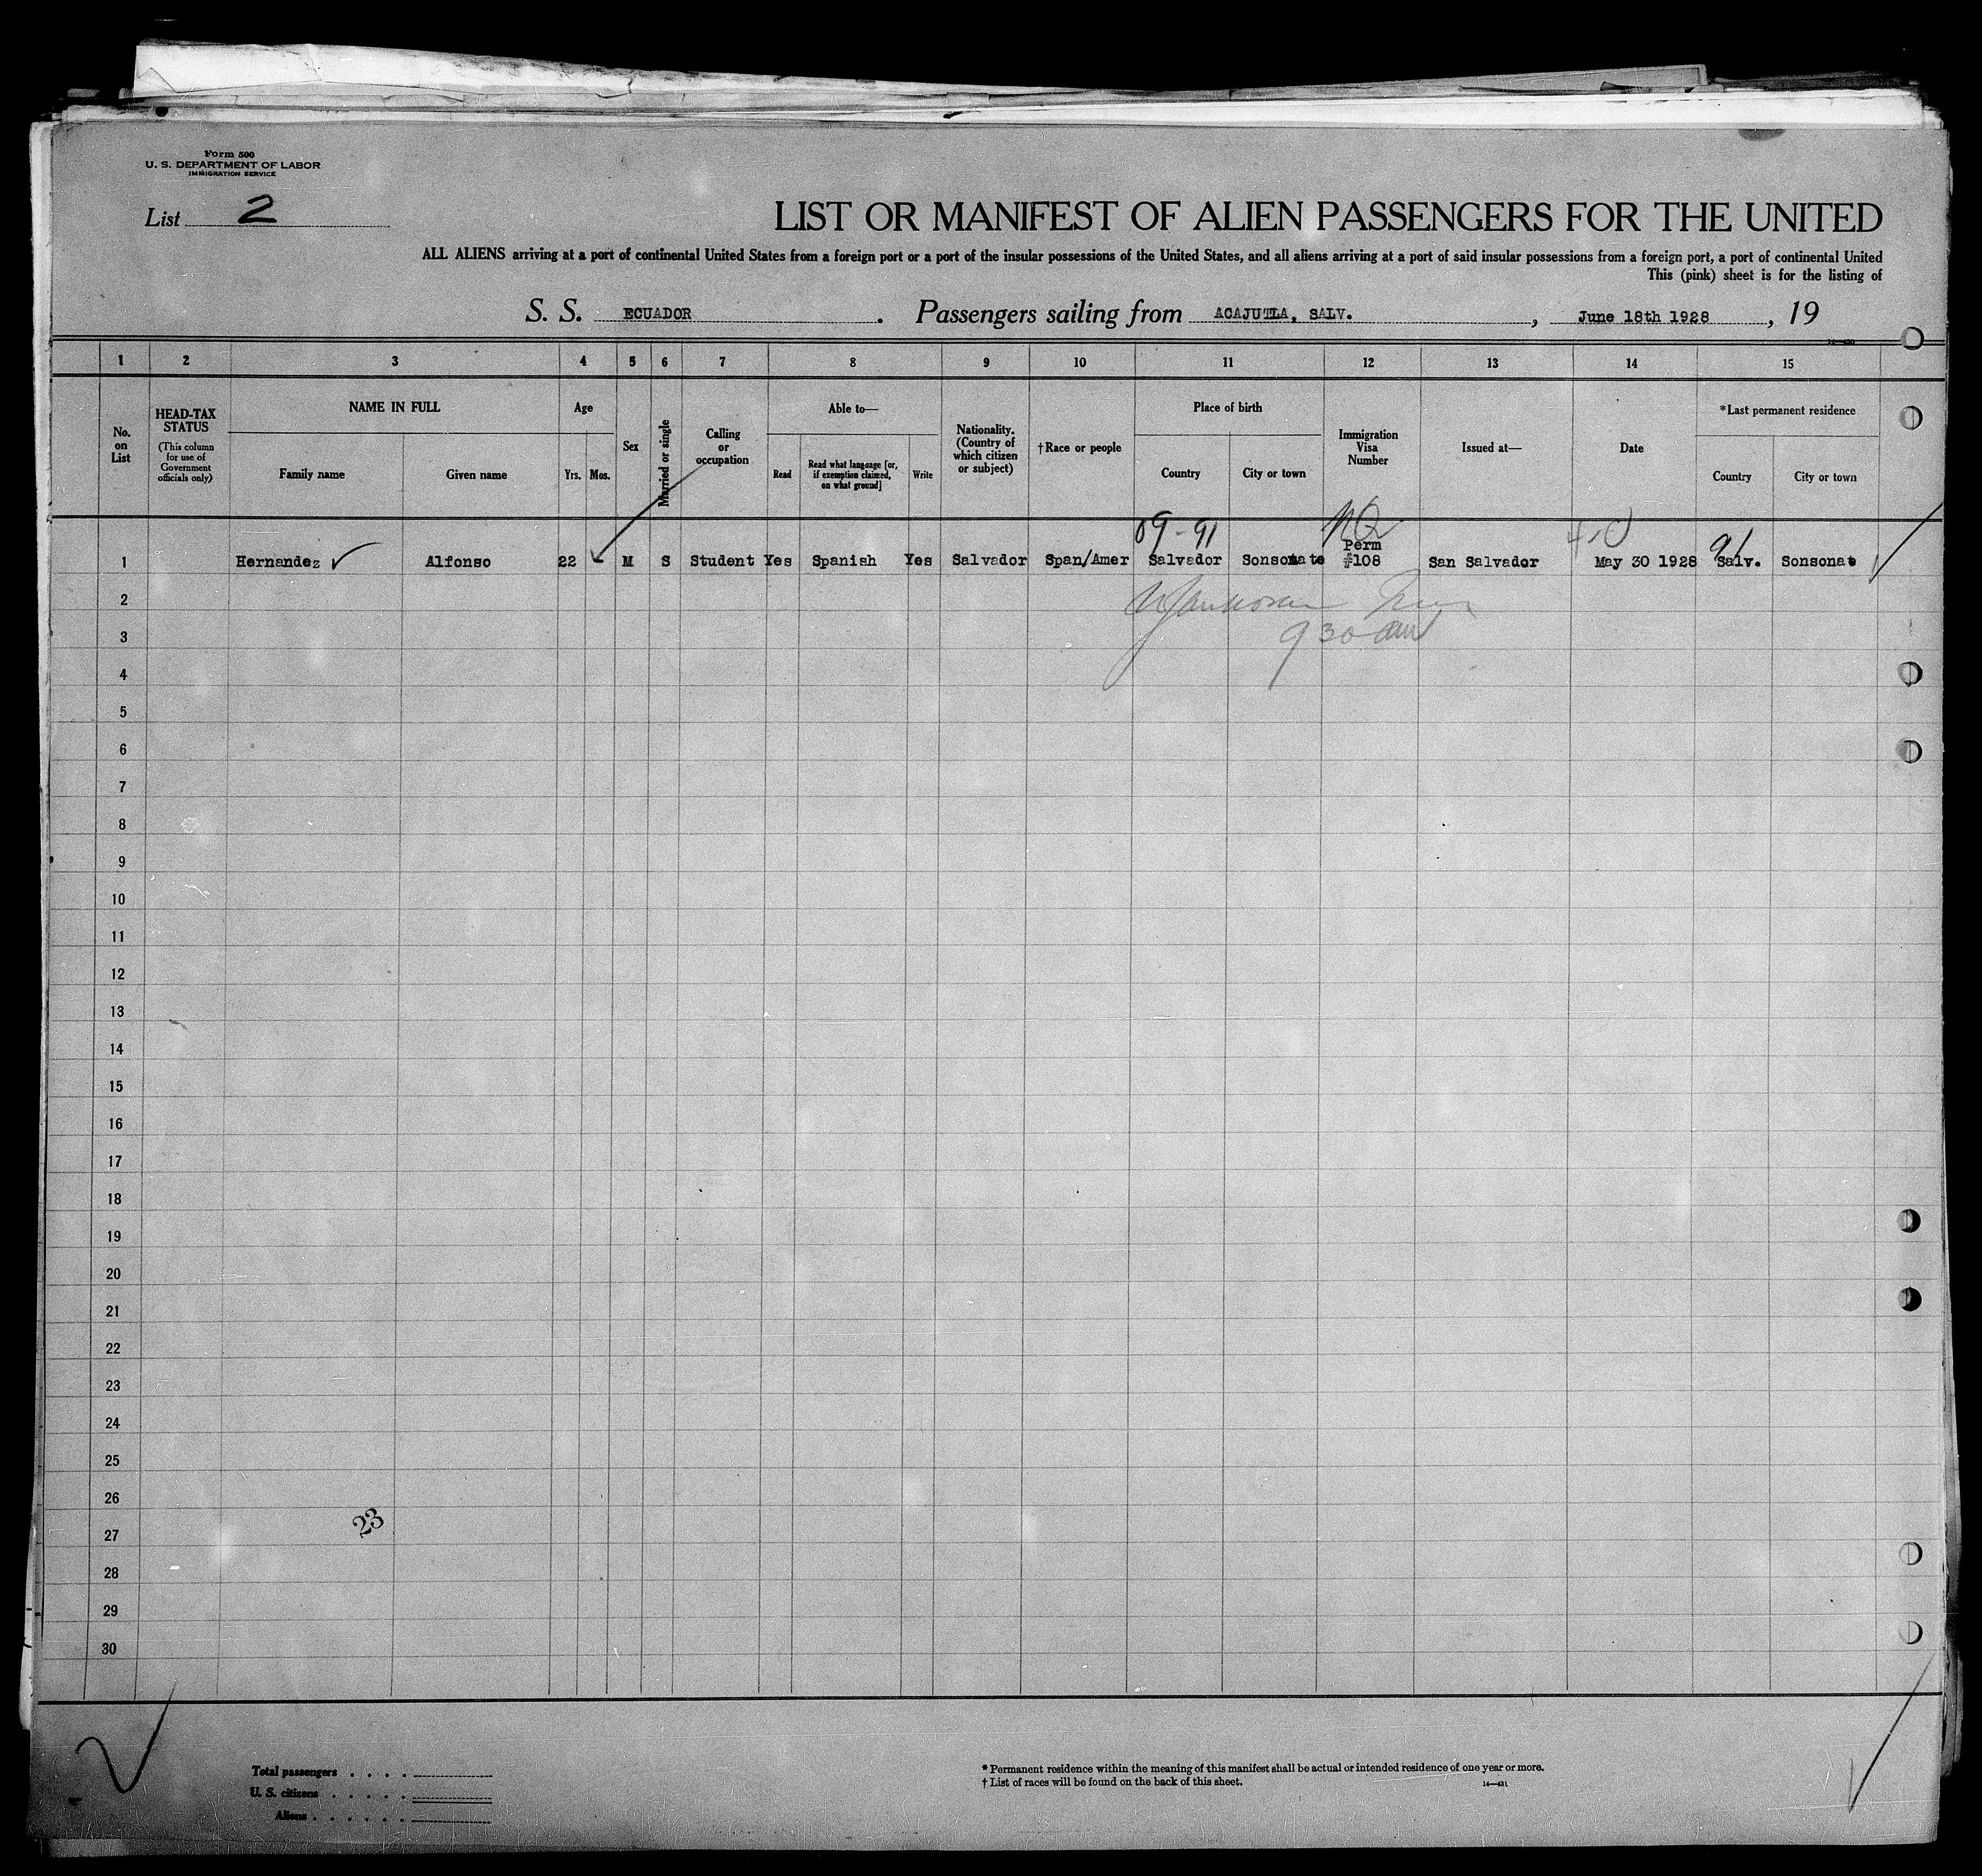 Form 500
U. S. DEPARTMENT OF LABOR
IMMIGRATION SERVICE
List 2
LIST OR MANIFEST OF ALIEN PASSENGERS FOR THE UNITED
ALL ALIENS arriving at a port of continental United States from a foreign port or a port of the insular possessions of the United States, and all aliens arriving at a port of said insular possessions from a foreign port, a port of continental United
This (pink) sheet is for the listing of
S. S. ECUADOR . Passengers sailing from ACAJUTLA, SALV. , June 18th 1928 , 19
1 2 3 4 5 6 7 8 9 10 11 12 13 14 15
No. on List
HEAD-TAX STATUS
(This column for use of Government officials only)
NAME IN FULL
Family name
Given name
Age
Yrs. Mos.
Sex
Married or single
Calling or occupation
Able to—
Read
Read what language [or, if exemption claimed, on what ground]
Write
Nationality. (Country of which citizen or subject)
†Race or people
Place of birth
Country
City or town
Immigration Visa Number
Issued at—
Date
*Last permanent residence
Country
City or town
09-91 NQ 91
1 Hernandez Alfonso 22 M S Student Yes Spanish Yes Salvador Span/Amer Salvador Sonsonate Perm #108 San Salvador May 30 1928 Salv. Sonsonat
2
9 30 am
3
4
5
6
7
8
9
10
11
12
13
14
15
16
17
18
19
20
21
22
23
24
25
26
23
27
28
29
30
Total passengers . . . .
U. S. citizens . . . . .
Aliens . . . . . .
* Permanent residence within the meaning of this manifest shall be actual or intended residence of one year or more.
† List of races will be found on the back of this sheet.
14—431